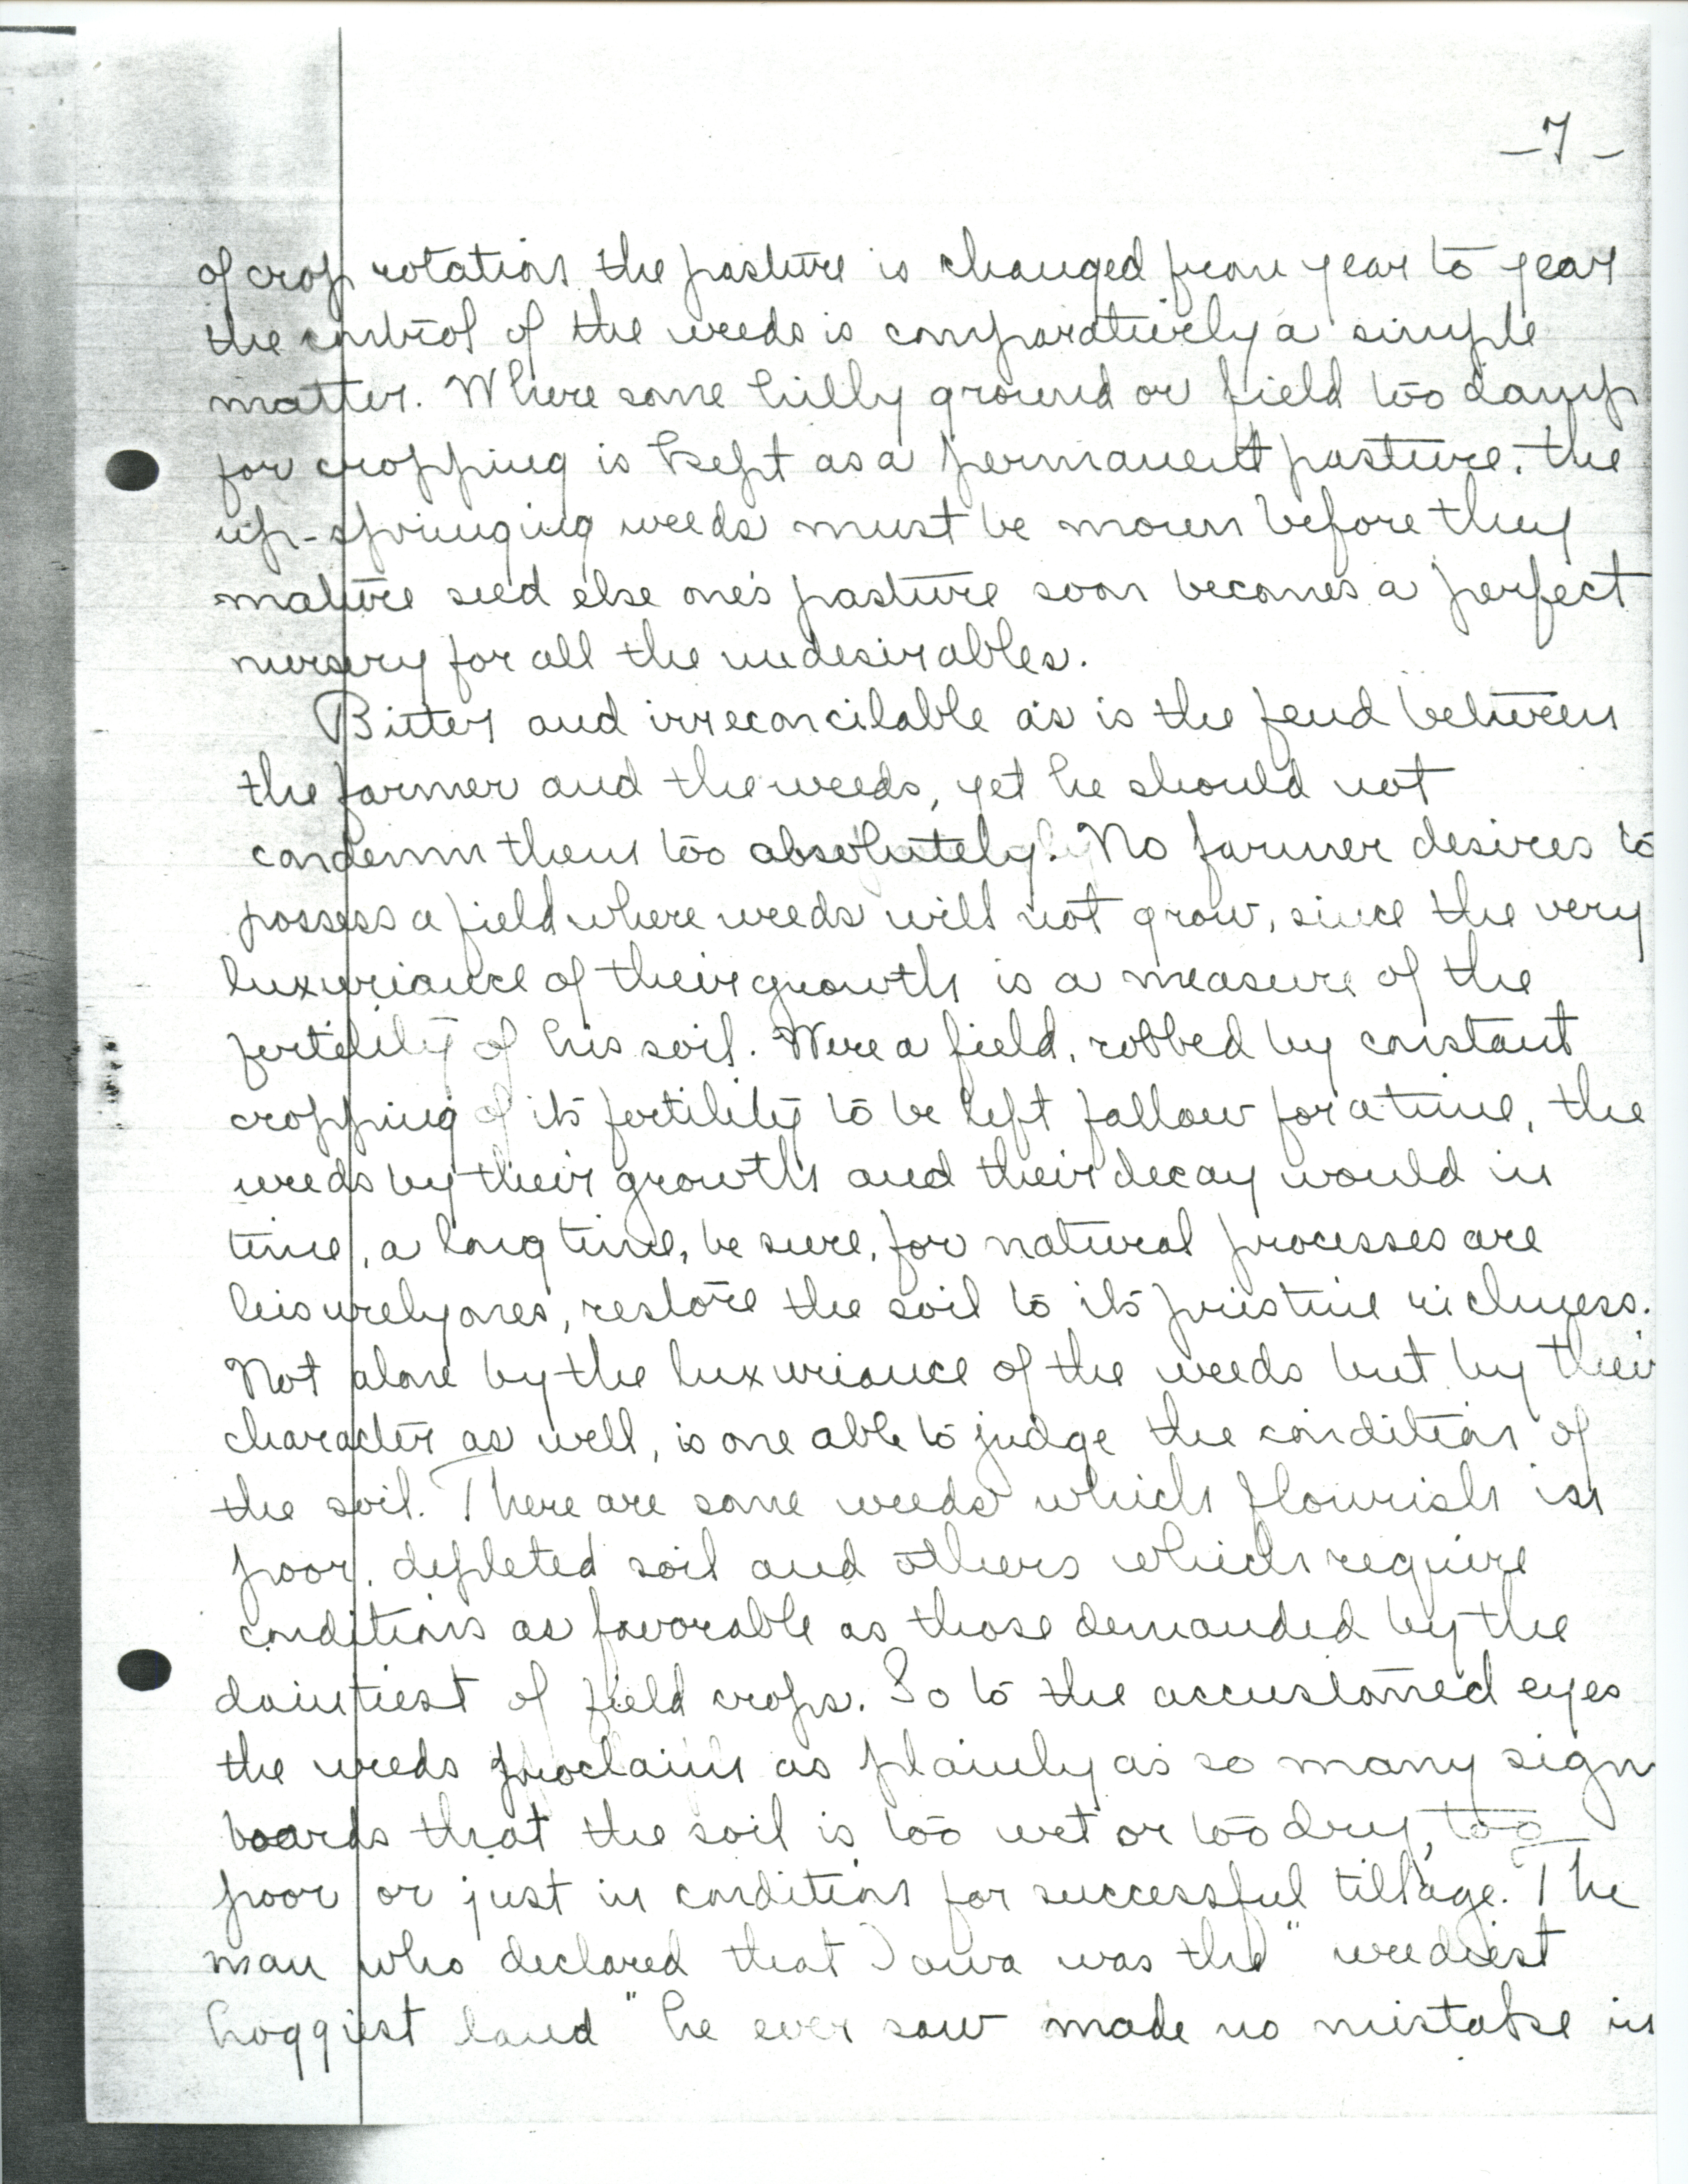 -7-
of crop rotation the pasture is changed from year to year
the control of the weeds is comparatively a simple
matter. Where some hilly ground or field too damp
for cropping is kept as a permanent pasture, the
up-springing weeds must be mown before they
mature seed else one's pasture soon becomes a perfect
nursery for all the undesirables.
Bitter and irreconcilable as is the feud between
the farmer and the weeds, yet he should not
condemn them too absolutely. No farmer desires to
possess a field where weeds will not grow, since the very
luxuriance of their growth is a measure of the
fertility of his soil. Were a field, robbed by constant
cropping of its fertility to be left fallow for a time, the
weeds by their growth and their decay would in
time, a long time, be sure, for natural processes are
leisurely ones, restore the soil to its pristine richness.
Not alone by the luxuriance of the weeds but by their
character as well, is one able to judge the condition of
the soil. There are some weeds which flourish in
poor, depleted soil and others which require
conditions as favorable as those demanded by the
daintiest of field crops. So to the accustomed eyes
the weeds proclaim as plainly as so many sign
boards that the soil is too wet or too dry, too
poor or just in condition for successful tillage. The
man who declared that Iowa was the "weediest
hoggiest land" he ever saw made no mistake in